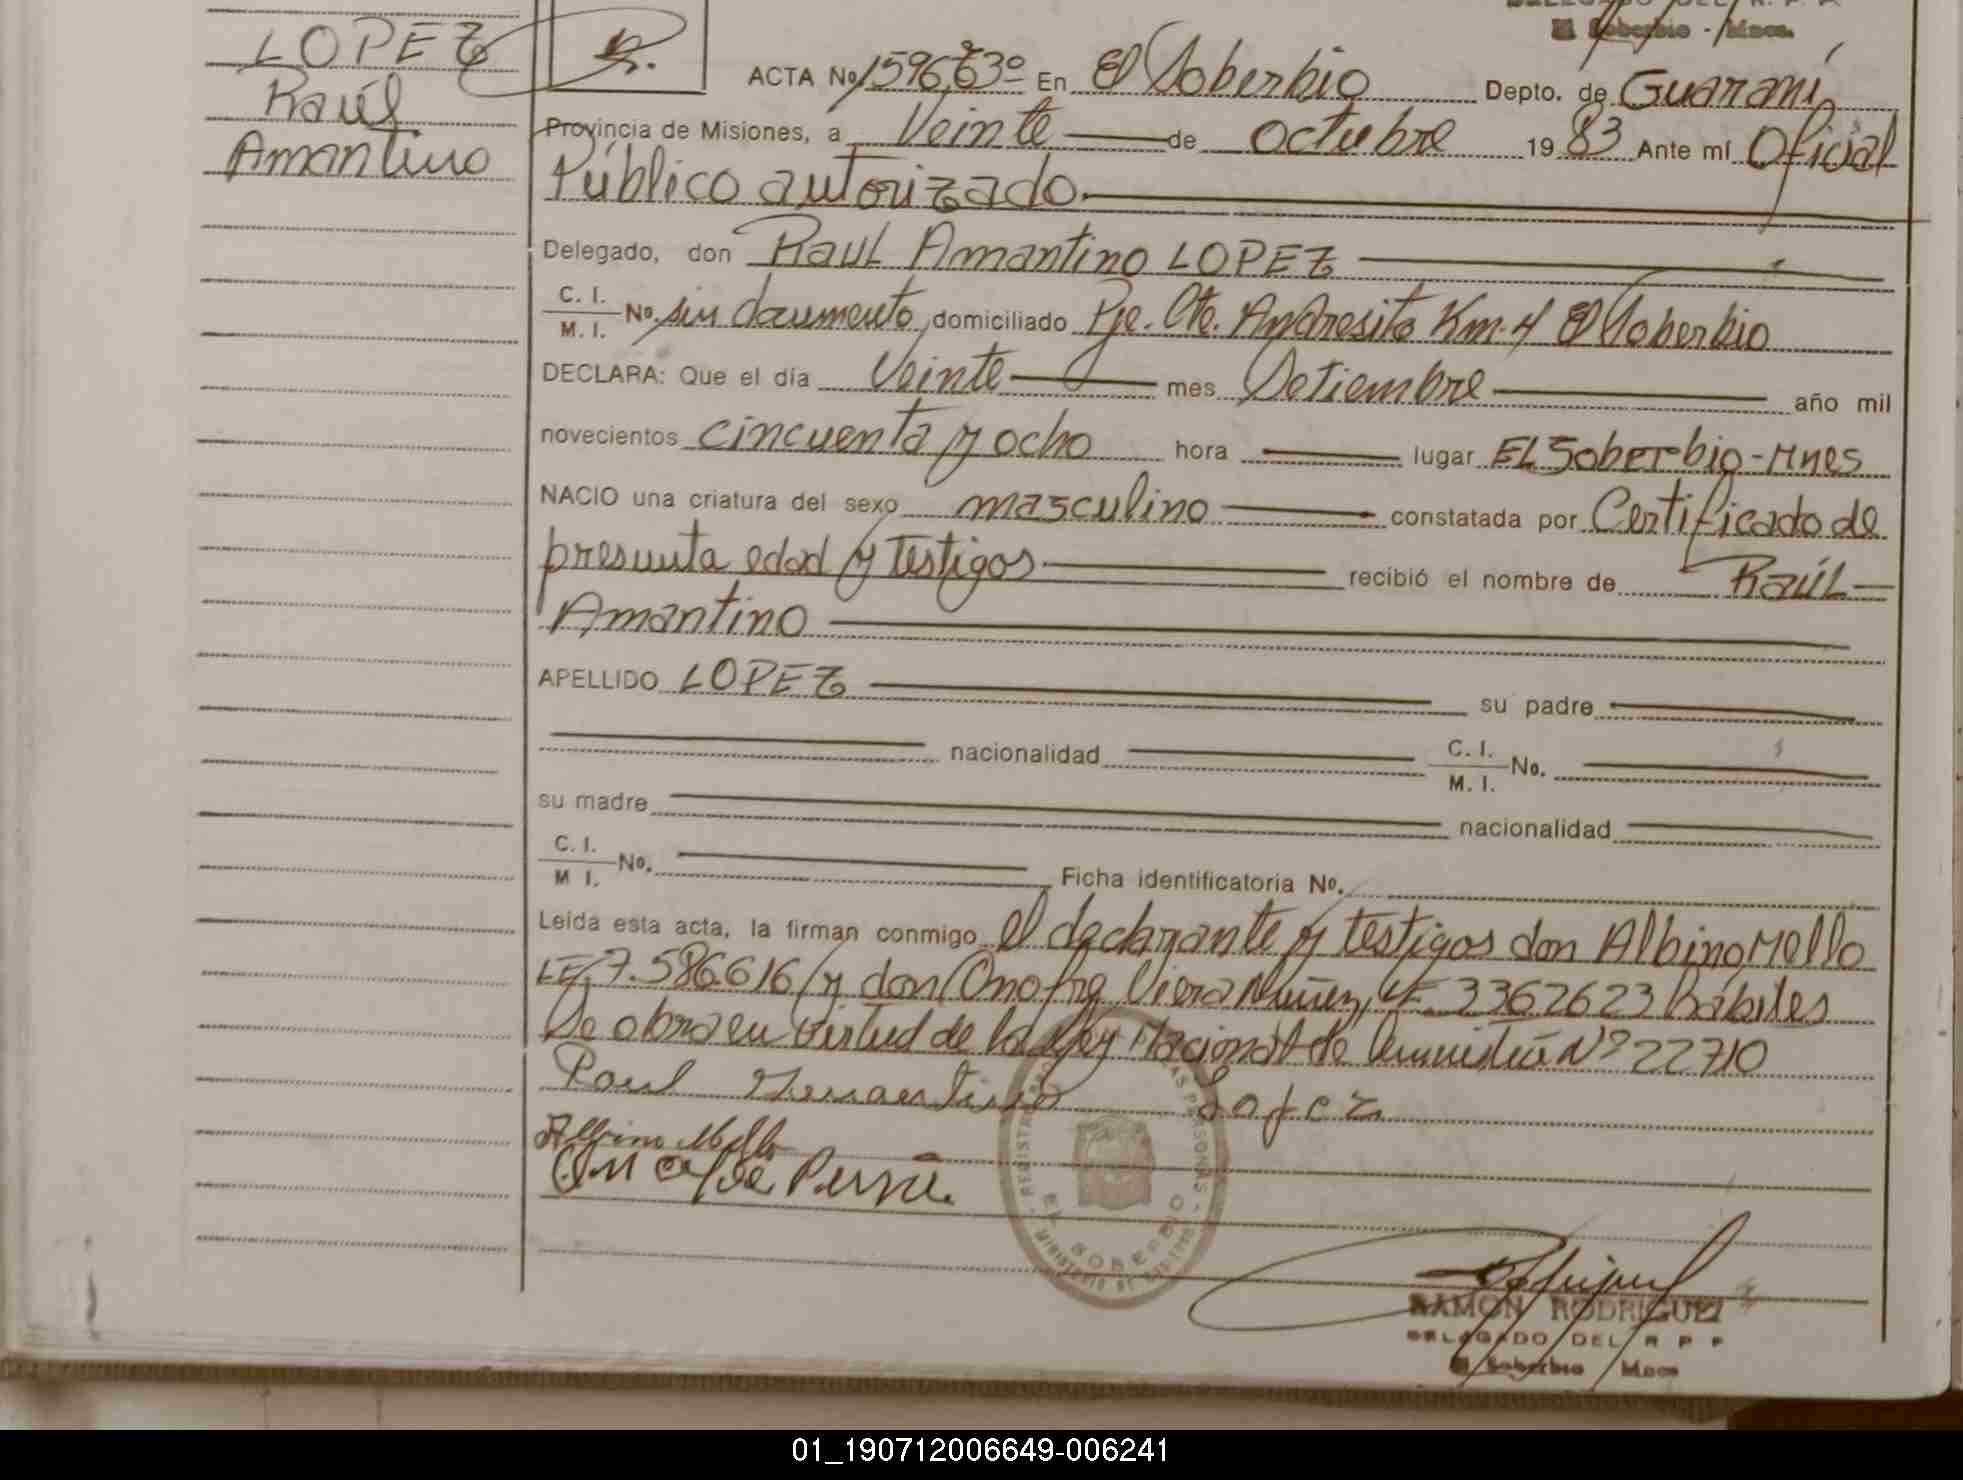 LOPEZ
Raúl
Amantino
El Soberbio - Mnes.
R.
ACTA No En El Soberbio Depto. de Guaraní
Provincia de Misiones, a Veinte de octubre 1983 Ante mí Oficial
Público autorizado.
Delegado, don RAUL Amantino LOPEZ
C. I. M. I. No. sin documento, domiciliado Pje. Cte. Andresito Km. 4 El Soberbio
DECLARA: Que el día Veinte mes Setiembre año mil
novecientos cincuenta y ocho hora lugar EL Soberbio - Mnes
NACIO una criatura del sexo masculino constatada por Certificado de
presunta edad y testigos recibió el nombre de RAÚL
Amantino
APELLIDO LOPEZ su padre
nacionalidad C. I. M. I. No.
su madre nacionalidad
C. I. M I. No. Ficha identificatoria No.
Leída esta acta, la firman conmigo el declarante y testigos don Albino Mello
LE. 7.586.616 y don Onofre Viera Nuñez, LE 3362623 hábiles
Se obra en virtud de la Ley Nacional de Amnistía Nº 22710
Raul Amantino Lopez
Albino Mello
EL SOBERBIO
RAMON RODRIGUEZ
DELEGADO DEL R P P
El Soberbio Mnes
01_190712006649-006241